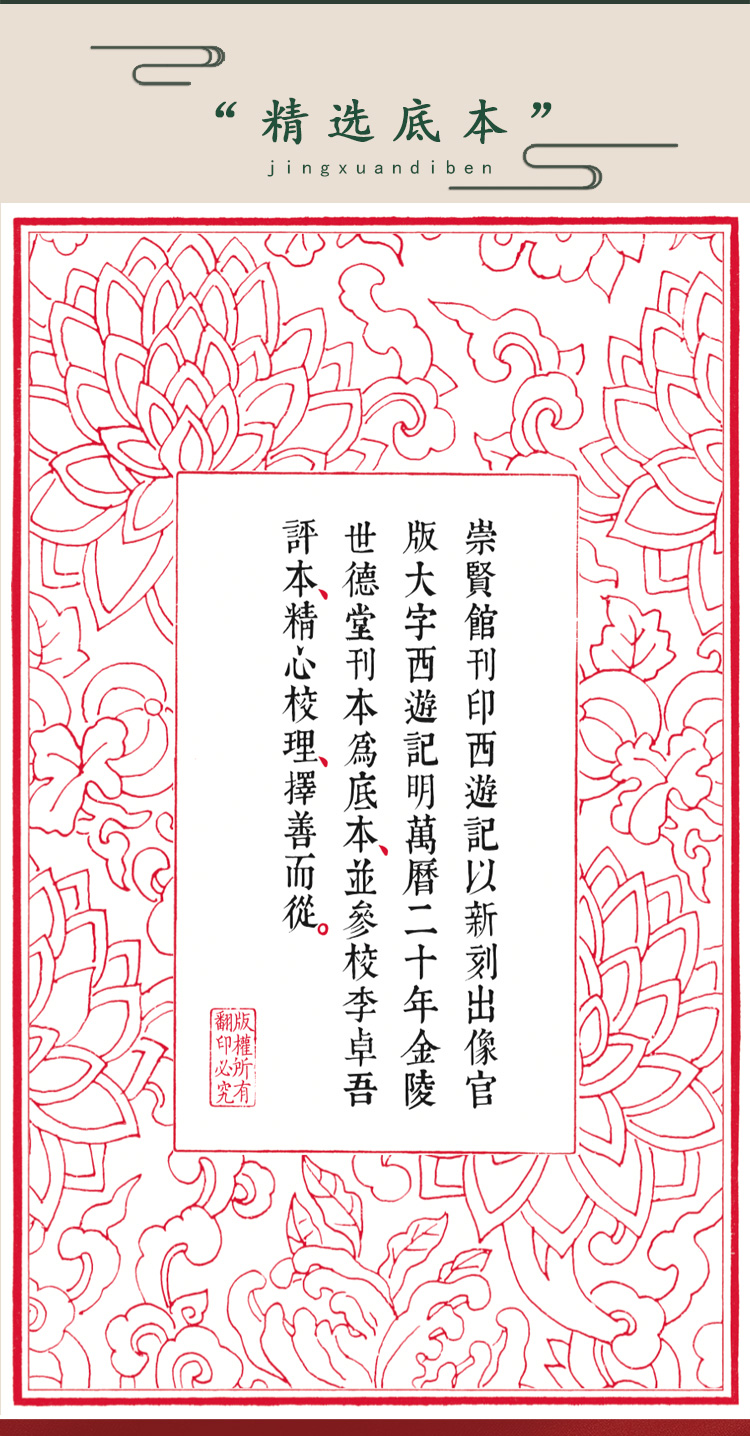 “精选底本”
jingxuandiben
崇賢館刊印西遊記以新刻出像官
版大字西遊記明萬曆二十年金陵
世德堂刊本爲底本、並參校李卓吾
評本、精心校理、擇善而從。
版權所有
翻印必究